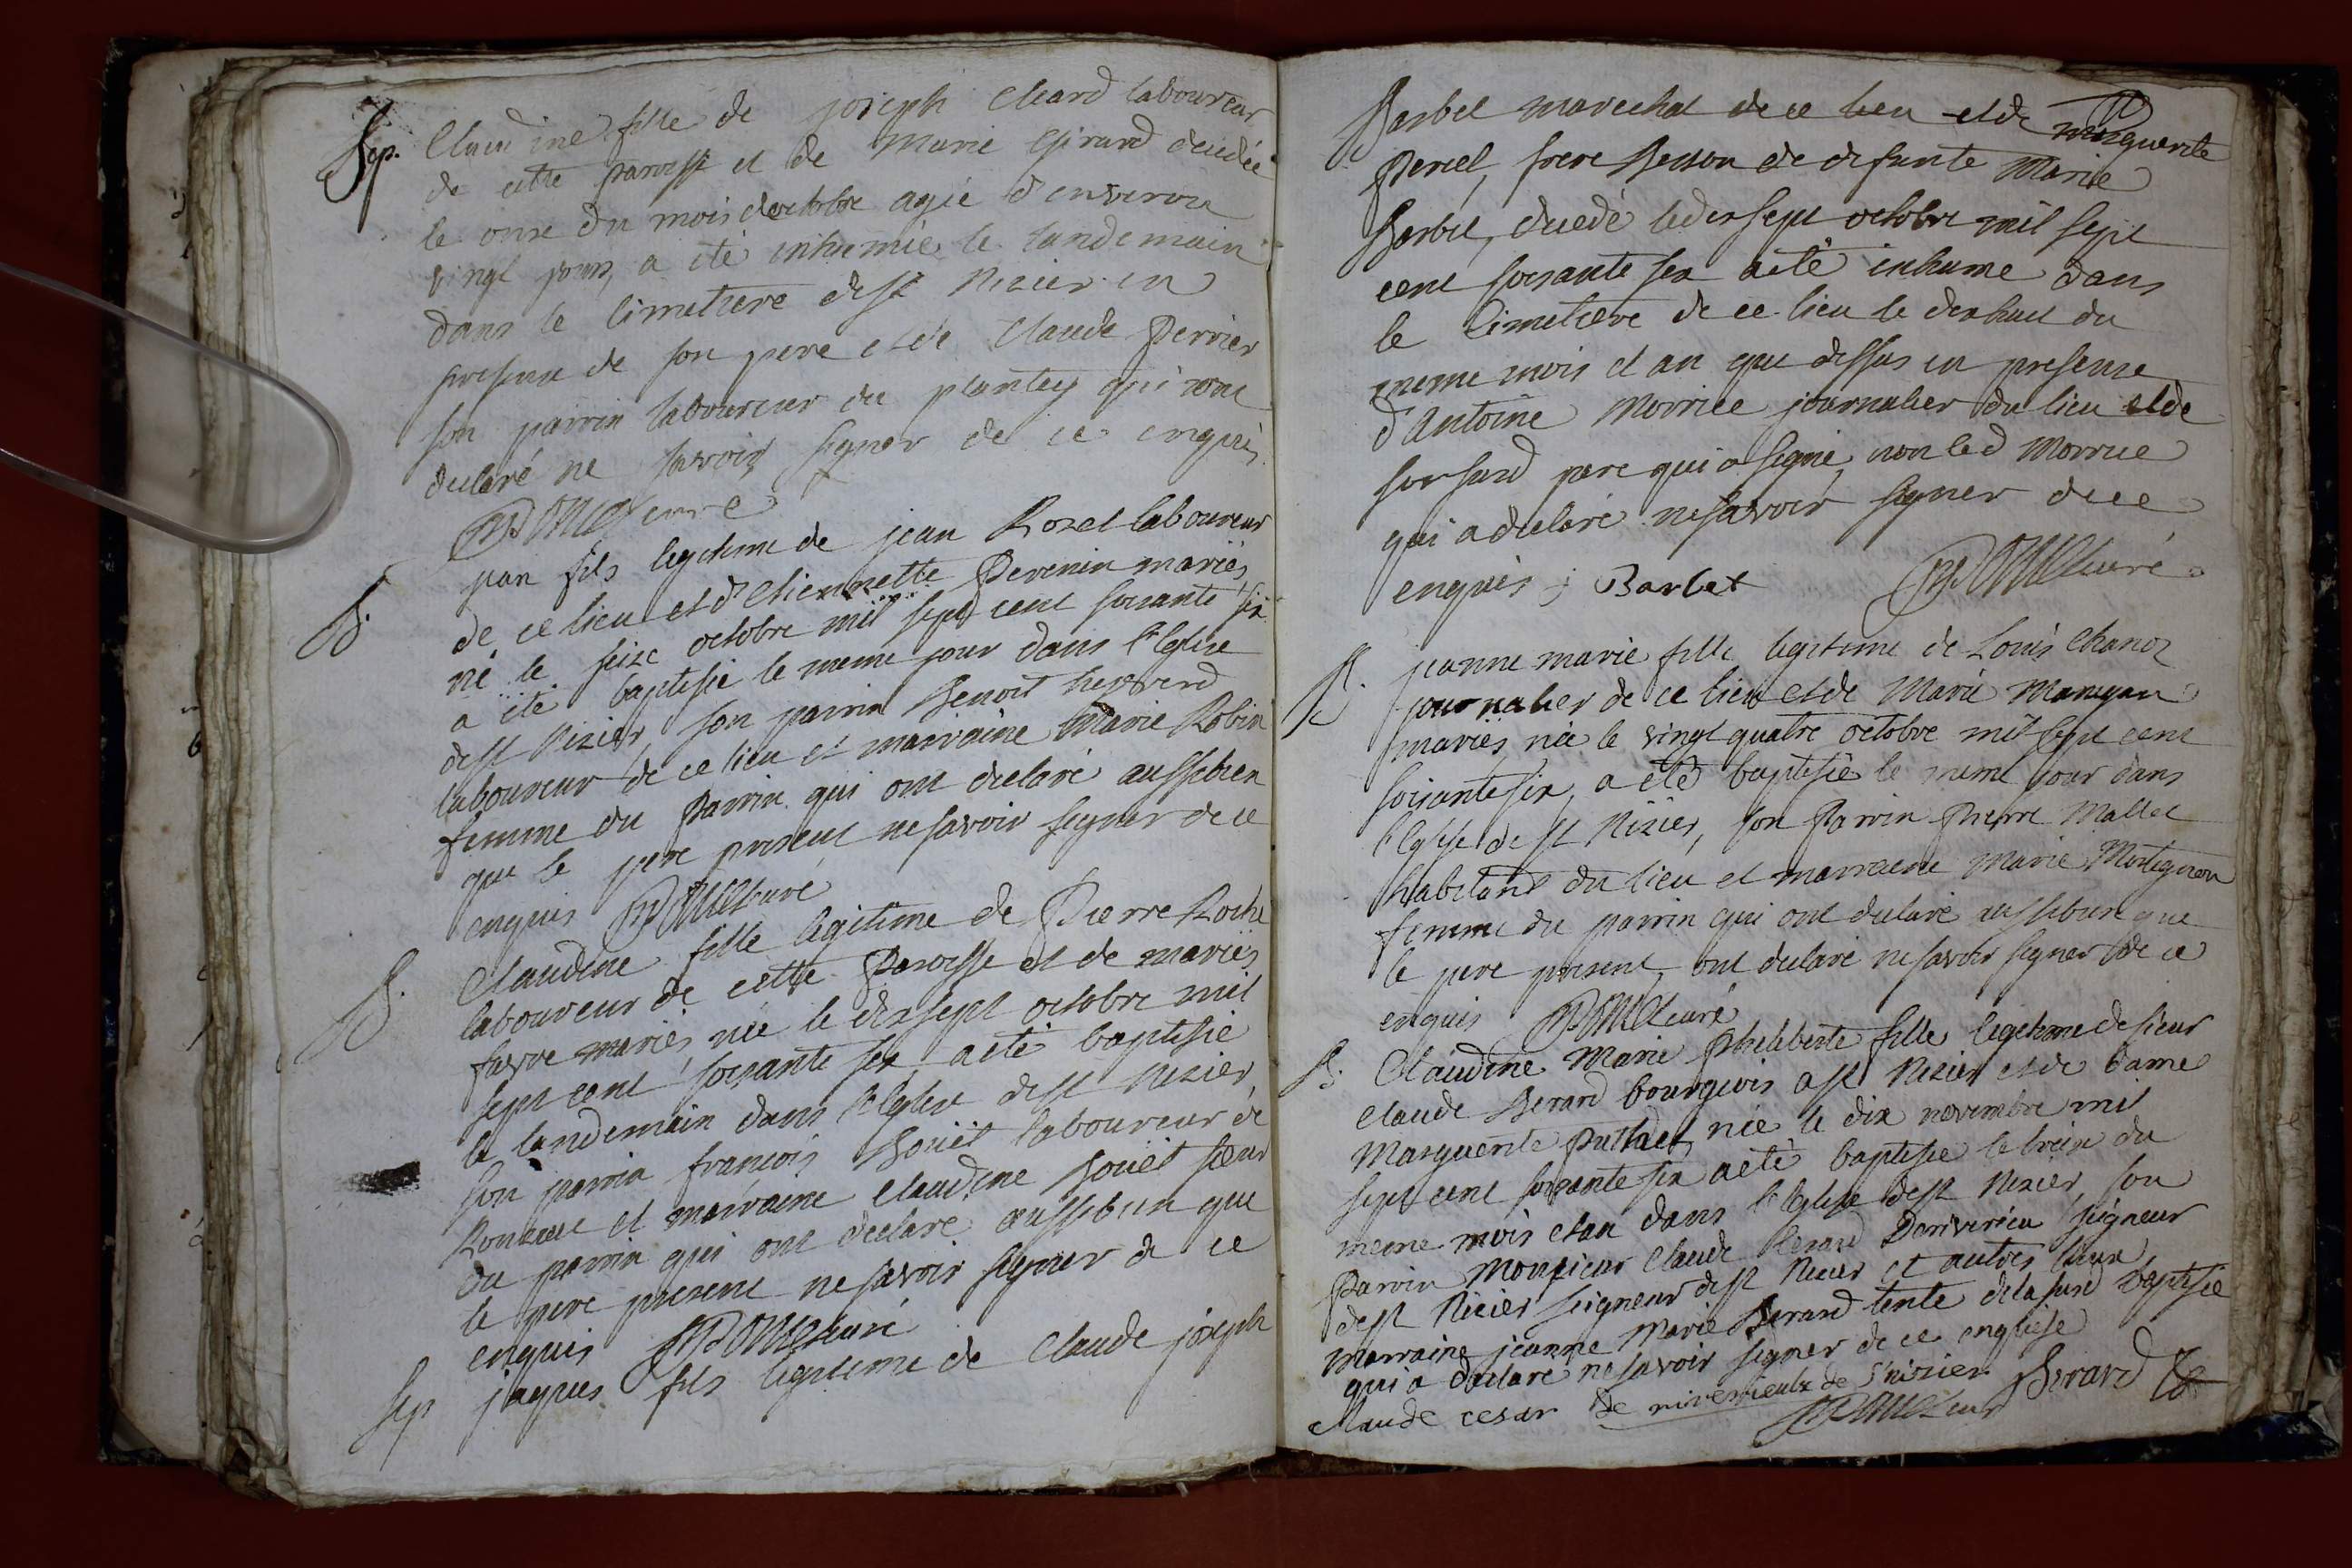 Sep. Claudine fille de joseph Cleard laboureur
de cette paroisse et de Marie Girard decedée
le onze du mois doctobre agée d'environ
vingt jours, a eté inhumée le landemain
dans le Cimetiere de st Nizier en
presence de son pere et de Claude Perrier
son parrin laboureur du plantey qui ont
declaré ne savoir signer de ce enquis
curé
B. jean fils legitime de jean Rozet laboureur
de ce lieu et d'Etiennette Pevenin mariés
né le seize octobre mil sept cent soixante six
a eté baptisé le meme jour dans l'Eglise
de st Nizier, son parrin Benoit
laboureur de ce lieu et marraine Marie Robin
femme du Parrin qui ont declaré aussi bien
que le pere present ne savoir signer de ce
enquis curé
B. Claudine fille legitime de Pierre Roche
laboureur de cette Paroisse et de mariés
favre mariés, née le dix sept octobre mil
sept cent soixante six a eté baptisée
le landemain dans l'Eglise de st Nizier
son parrin françois Bouët laboureur de
et marraine Claudine Bouët sœur
du parrin qui ont declaré aussi bien que
le pere present ne savoir signer de ce
enquis curé
Sep jaques fils legitime de Claude joseph
Barbet marechal de ce lieu et de marguerite
Perret, frere Besson de defunte Marie
Barbet, decedé le dix sept octobre mil sept
cent soixante six a eté inhumé dans
le Cimetiere de ce lieu le dix huit du
meme mois et an que dessus en presence
d'Antoine Morrier journalier du lieu et de
son surd pere qui a signé, non led Morrier
qui a declaré ne savoir signer de ce
enquis j Barbet curé
B. jeanne marie fille legitime de Louis Chanoz
journalier de ce lieu et de Marie
mariés, née le vingt quatre octobre mil sept cent
soixante six, a eté baptisée le meme jour dans
l'Eglise de st Nizier, son Parrin Pierre Mallet
habitant du lieu et marraine Marie
femme du parrin qui ont declaré aussi bien que
le pere present, ont declaré ne savoir signer de ce
enquis curé
B. Claudine Marie Philiberte fille legitime de sieur
Claude Berard bourgeois a st Nizier et de dame
Marguerite née le dix novembre mil
sept cent soixante six a eté baptisée le treize du
meme mois et an dans l'Eglise de st Nizier, son
Parrin Monsieur Claude Cesard Deriverieu seigneur
de st Nizier seigneur de st Nizier et autres lieux,
marraine jeanne Marie Berard tente de la surd baptisée
qui a declaré ne savoir signer de ce enquise
Claude cesar de riverieulx de s nizier Berard
curé